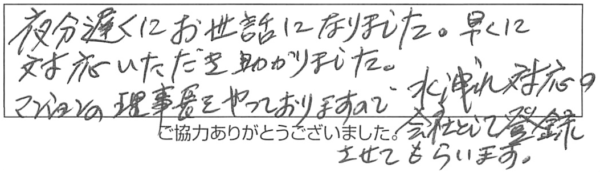 夜分遅くにお世話になりました。早くに
対応いただき助かりました。
マンションの理事長をやっておりますので水洩れ対応の
会社として登録
させてもらいます。
ご協力ありがとうございました。